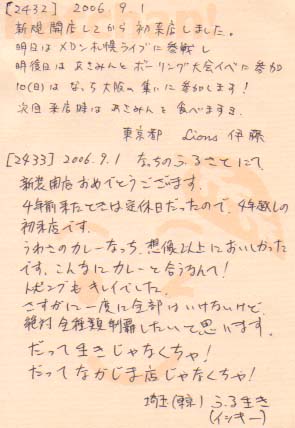 [2432] 2006.9.1
新規開店してから初来店しました。
明日はメロン札幌ライブに参戦し
明後日はあさみんとボーリング大会イベに参加
10(日)はなっち大阪の集いに参加します!
次回来店時はあさみんを食べますます。
東京都 Lions 伊藤
[2433] 2006.9.1 なっちのふるさとにて
新装開店おめでとうございます。
4年前来たときは定休日だったので、4年越しの
初来店です。
うわさのカレーなっち、想像以上においしかった
です。こんなにカレーと合うなんて!
トッピングもキレイでした。
さすがに一度に全部はいけないけど、
絶対全種類制覇したいって思います。
だって生きじゃなくちゃ!
だってなかじま店じゃなくちゃ!
埼玉(東京) ふる生き
(イッキー)